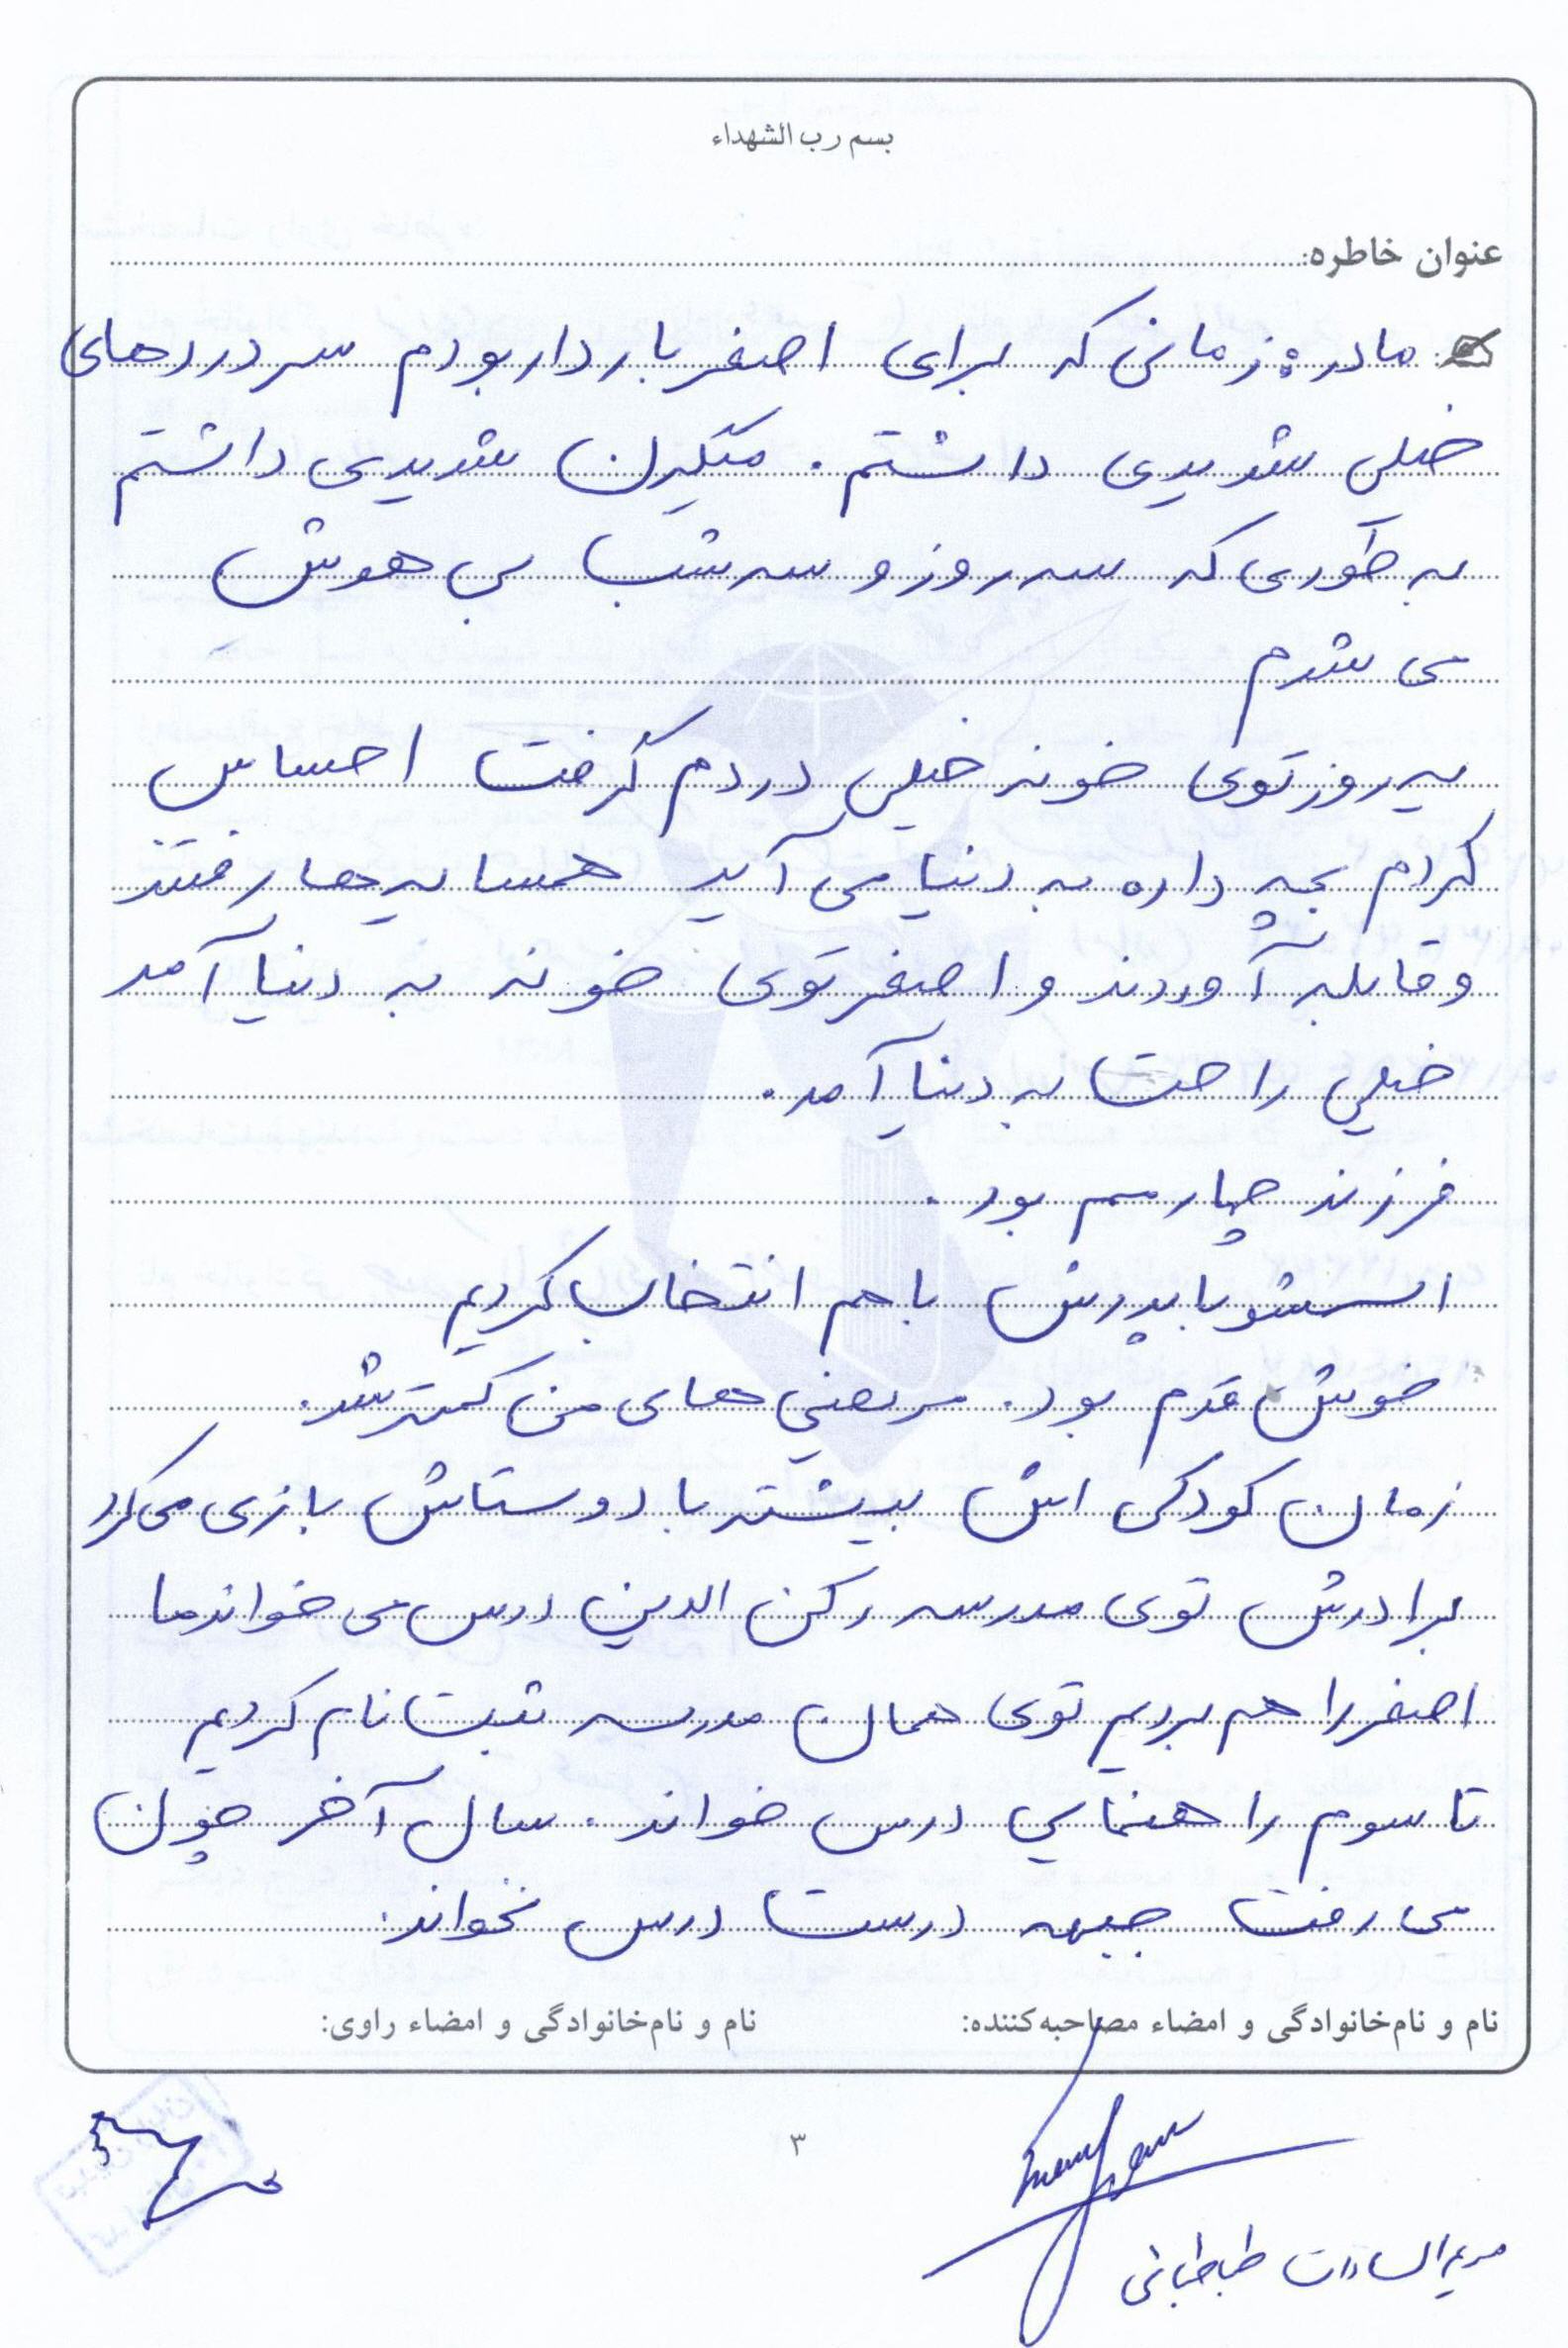 بسم رب الشهداء
عنوان خاطره:
مادر: زمانی که برای اصغر باردار بودم سردردهای
خیلی شدیدی داشتم. میگرن شدیدی داشتم
به طوری که سه روز و سه شب بی هوش
می شدم
یه روز توی خونه خیلی دردم گرفت احساس
کردم بچه داره به دنیا می آید همسایه ها رفتند
و قابله آوردند و اصغر توی خونه به دنیا آمد
خیلی راحت به دنیا آمد.
فرزند چهارمم بود.
اسمشو با پدرش با هم انتخاب کردیم
خوش قدم بود. مریضی های من کمتر شد.
زمان کودکی اش بیشتر با دوستاش بازی می کرد
برادرش توی مدرسه رکن الدین درس می خواند ما
اصغر را هم بردیم توی همان مدرسه ثبت نام کردیم
تا سوم راهنمایی درس خواند. سال آخر چون
می رفت جبهه درست درس نخواند.
نام و نام‌خانوادگی و امضاء مصاحبه‌کننده:
نام و نام‌خانوادگی و امضاء راوی:
۳
مریم السادات طباطبائی